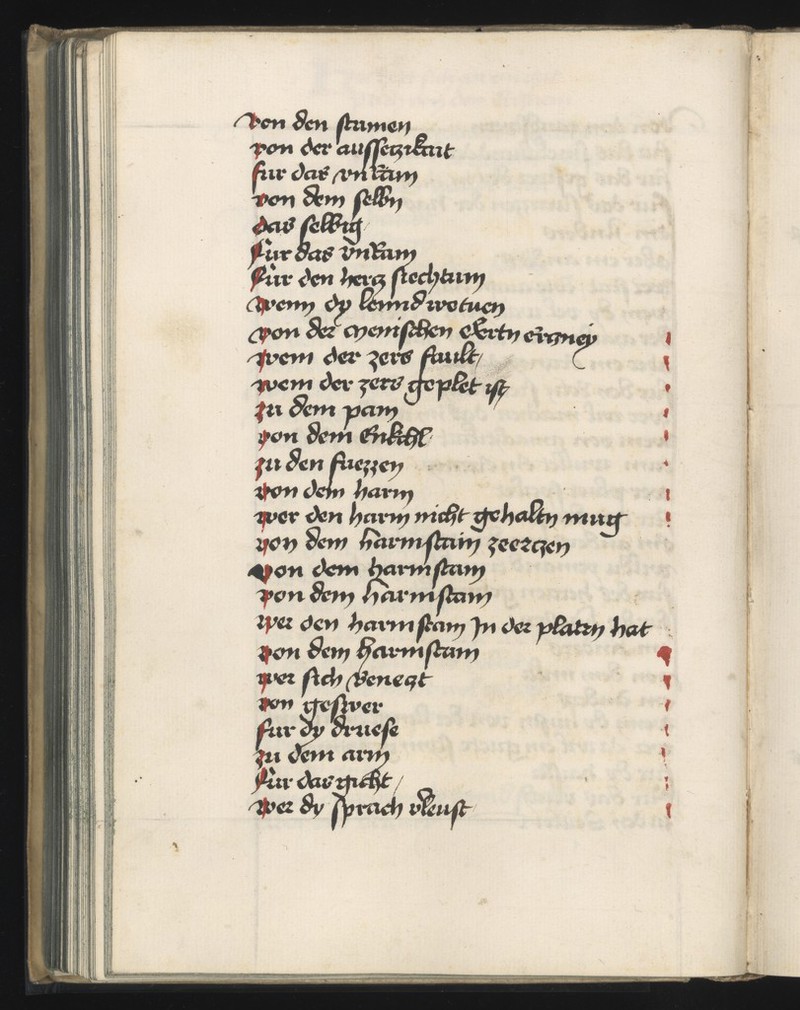 Von den stainen
von der aussetzikait
fur das vnkain
von dem selbn
das selbig
Für das vnkain
Für den hertz siechtum
wenn dy lennd wetuen
von der menischen ertzney
wem der zers fault
wem der zers geplet ist
zu dem pain
von dem Enkchl
zu den fuezzen
von dem harm
wer den harm nicht gehaltn mug
von dem harmstain
von dem harmstain
von dem harmstain
wer den harmstain Jn der platrn hat
von dem harmstain
wer sich benegt
von geswer
fur dy druese
zu dem arm
Für das gicht
wer dy sprach vleust